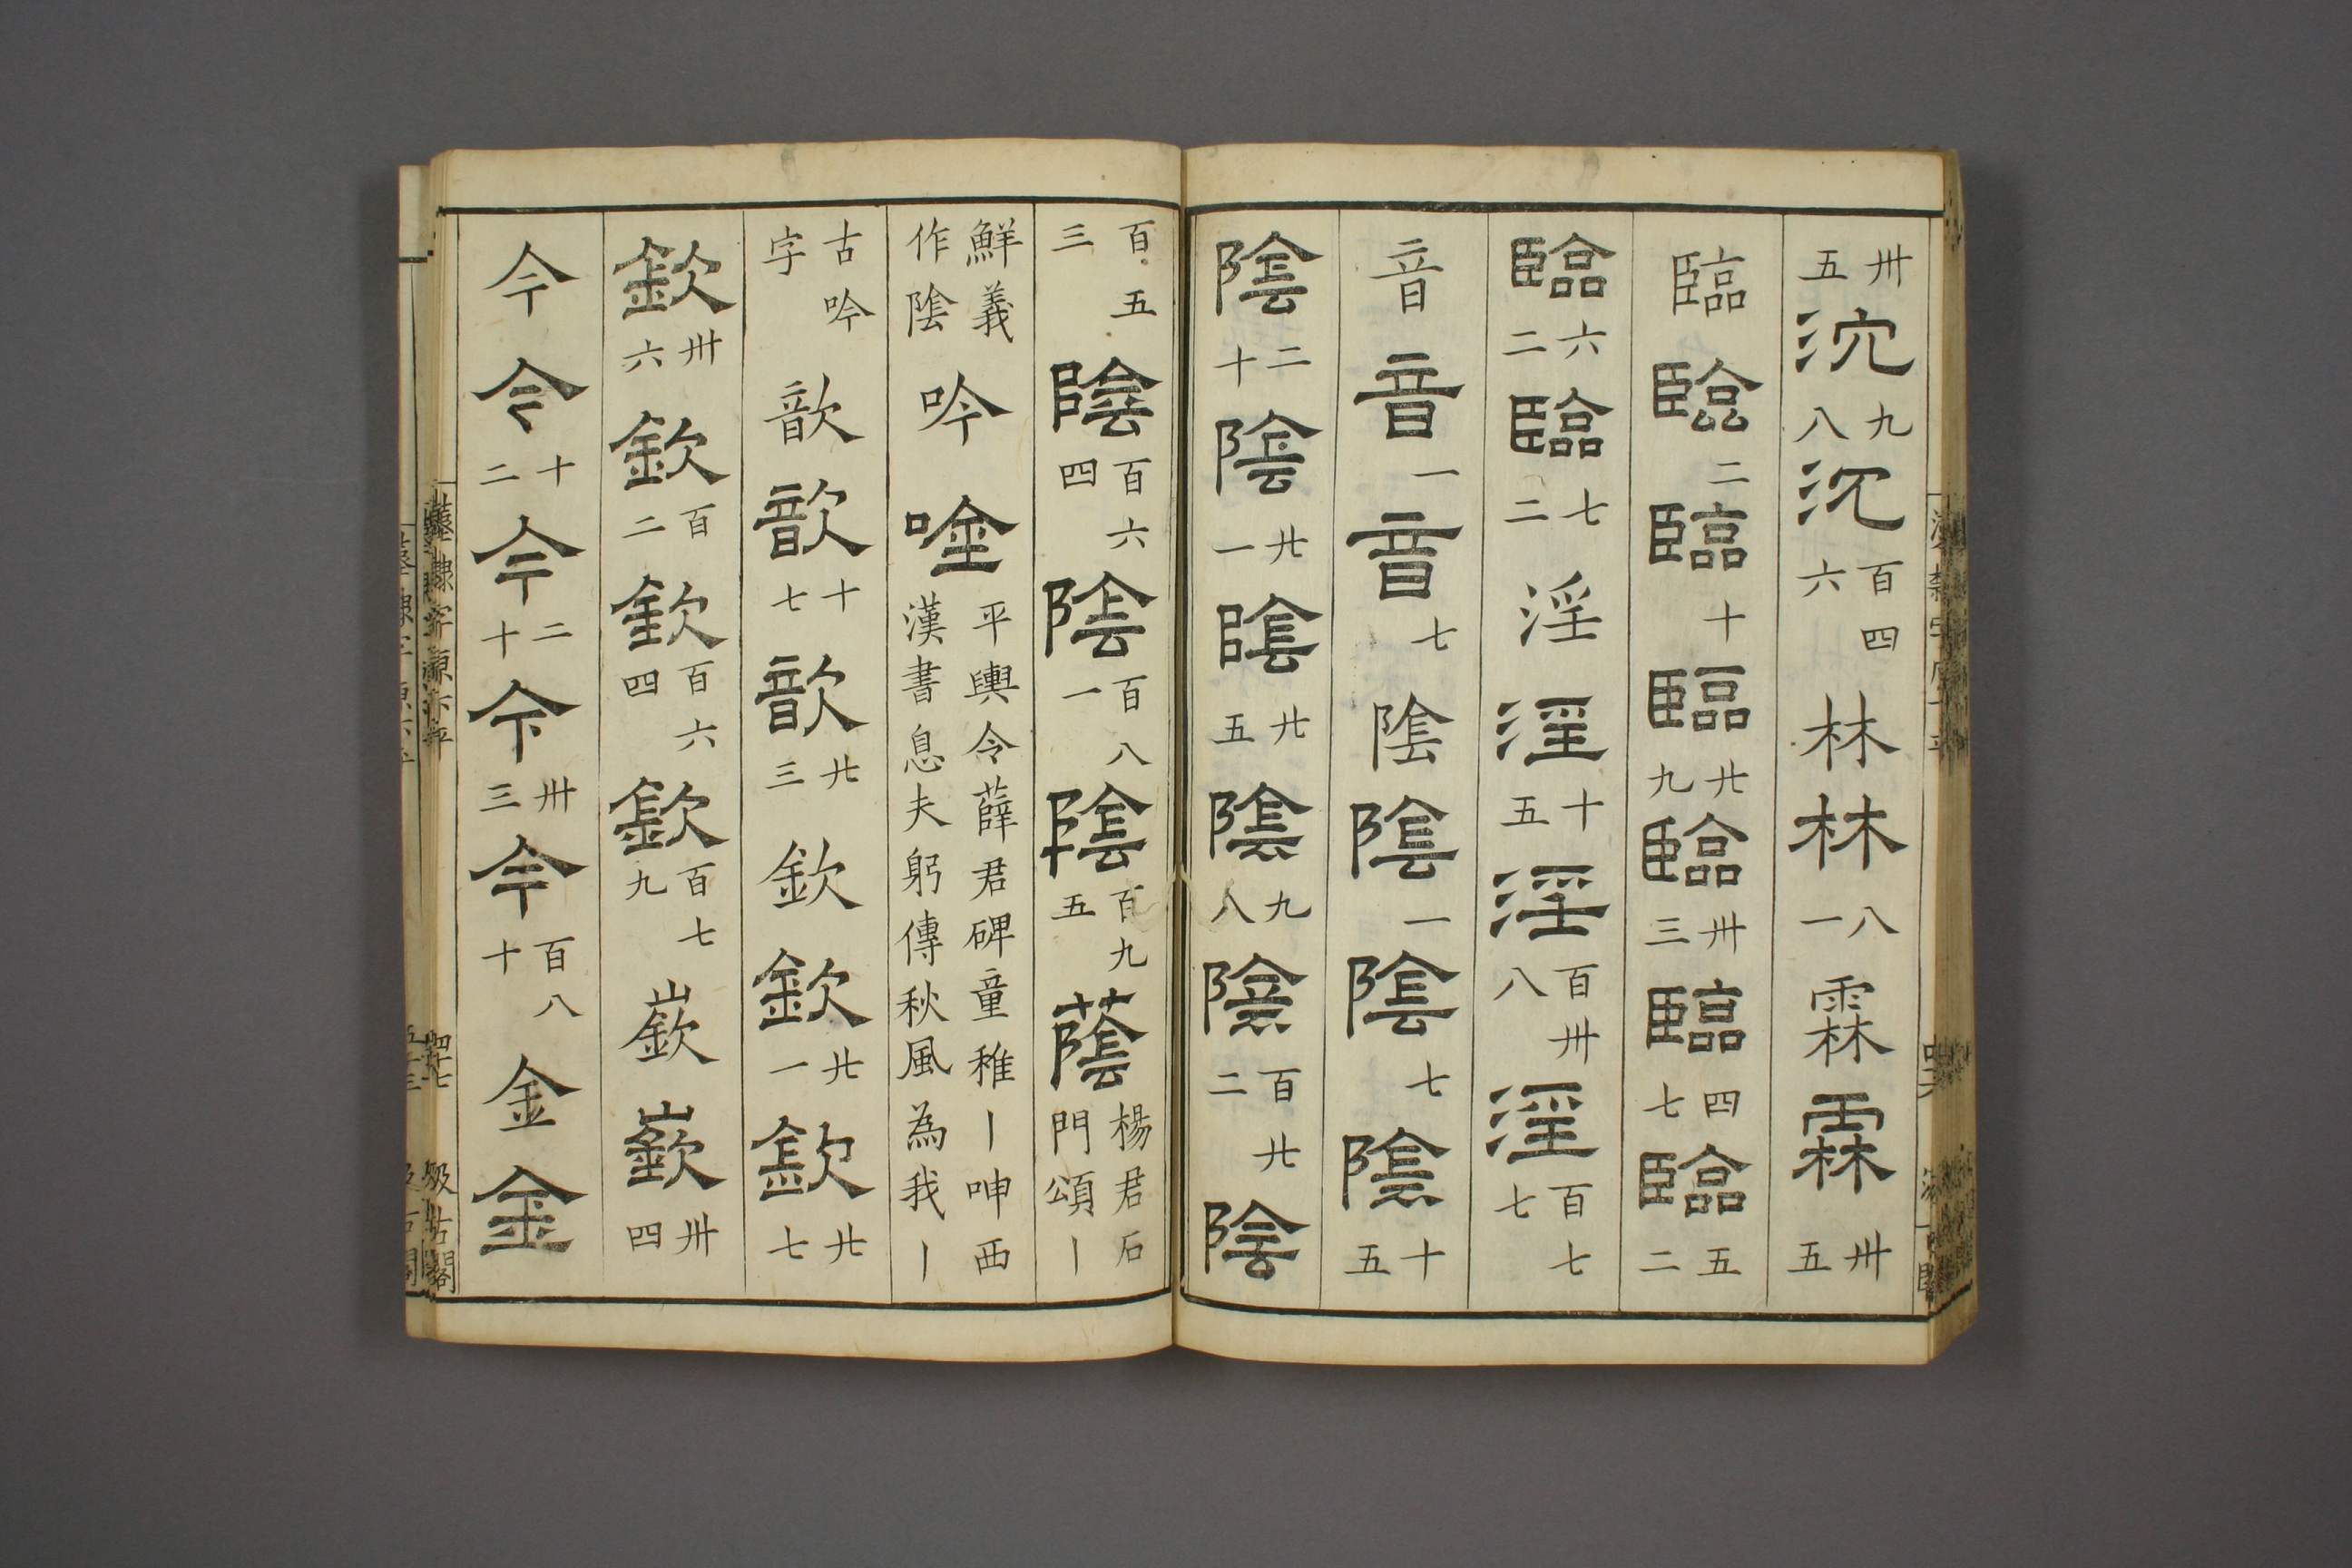 卅五沉九八沉百四六林林八一霖霖卅五
臨臨二臨十臨廿九臨卅三臨四七臨五二
臨六二臨七二淫淫十五淫百卅八淫百七七
音音一音七陰陰一陰七陰十五
陰二十陰廿一陰廿五陰九八陰百廿二陰
百五三陰百六四陰百八一陰百九五蔭楊君石門頌丨
鮮義作陰吟唫平輿令薛君碑童稚丨呻西漢書息夫躬傳秋風為我丨
古吟字歆歆十七歆廿三欽欽廿一欽廿七
欽卅六欽百二欽百六四欽百七九嶔嶔卅四
今今十二今二十今卅三今百八十金金
漢隸字源六平
四十七
汲古閣